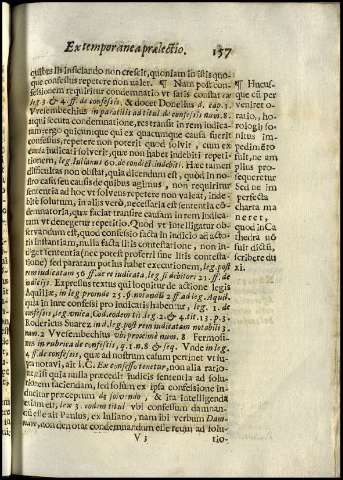 Extemporanea prælectio. 157
quibus lis inficiando non crescit, quoniam in istis quo-
que confessus repetere non valet. ¶ Nam post con-
fessionem requiritur condemnatio vt satis constat ex
leg. 3 & 4. ff. de confessis, & docet Donellus d. cap. 1.
Vvesembechius in paratitlis ad titul. de confessis num. 8.
at qui secuta condemnatione, res transit in rem iudica-
tam: ergo quicunque qui ex quacumque causa fuerit
confessus, repetere non poterit quod soluit, cum ex
causa iudicati soluerit, quæ non habet indebiti repeti-
tionem, leg. Iulianus 60. de condict. indebiti. ¶ Hæc tamen
difficultas non obstat, quia dicendum est, quod in no-
stro casu seu causis de quibus agimus, non requiritur
sententia ad hoc vt soluens repetere non valeat, inde-
bitè solutum, in aliis verò, necessaria est sententia co-
demnatoria, quæ faciat transire causam in rem iudica-
tam vt denegetur repetitio. Quod vt intelligatur ob-
seruandum est, quod confessio facta in iudicio ad acto-
ris instantiam, nulla facta litis contestatione, non in-
diget sententia (nec potest proferri sine litis contesta-
tione) sed paratam potius habet executionem, leg. post
rem iudicatam 56. ff. de re iudicata, leg. si debitori 21. ff. de
iudicijs. Expressus textus qui loquitur de actione legis
Aquiliæ, in leg. proinde 25. §. notandum 2. ff. ad leg. Aqui-
quia in iure confessi pro iudicatis habentur, leg. 1. de
confessis, leg. vnica, Cod. eodem tit. leg. 2. & 4. tit. 13. p. 3.
Rodericus Suarez in d. leg. post rem iudicatam notabili 3.
num. 2 Vvesembechius vbi proximè num. 8. Fermosi-
nus in rubrica de confessis, q. 1. n. 8. & seq. Vnde in leg.
4. ff. de confessis, quæ ad nostrum casum pertinet vti su-
pra notaui, ait I. C. Ex confesso tenetur, non alia ratio-
ne nisi quia nulla præcessit iudicis sententia ad solu-
tionem faciendam, sed solum ex ipsa confessione in-
ducitur præceptum de soluendo, & ita intelligenda
est
V 3 tio-
¶ Hucus-
que cũ per
veniret o-
ratio, ho-
rologij so-
nitus im-
pedimẽto
fuit, ne am
plius prose-
queretur
Sed ne im
perfecta
charta ma
neret,
quod in Ca
thedra nõ
fuit dictũ,
scribere du
xi.